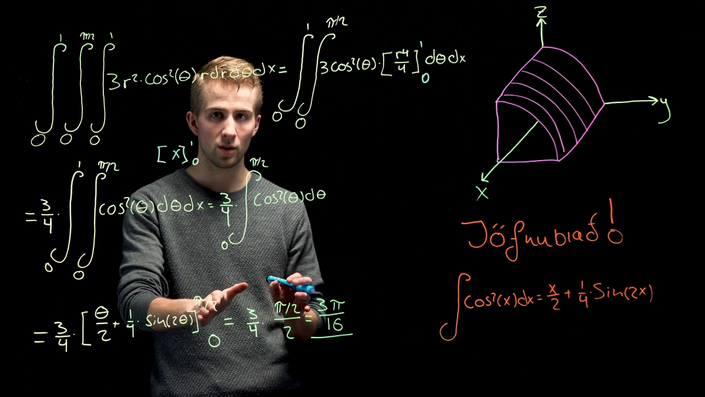 ∫₀¹ ∫₀^{π/2} ∫₀¹ 3r²·cos²(θ) r dr dθ dx = ∫₀¹ ∫₀^{π/2} 3cos²(θ)·[r⁴/4]₀¹ dθ dx
[x]₀¹
= 3/4 · ∫₀¹ ∫₀^{π/2} cos²(θ) dθ dx = 3/4 · ∫₀^{π/2} cos²(θ) dθ
= 3/4 · [θ/2 + 1/4 · sin(2θ)]₀ = 3/4 · (π/2)/2 = 3π/16
z
y
x
Jöfnubiað!
∫cos²(x)dx = x/2 + 1/4 · Sin(2x)